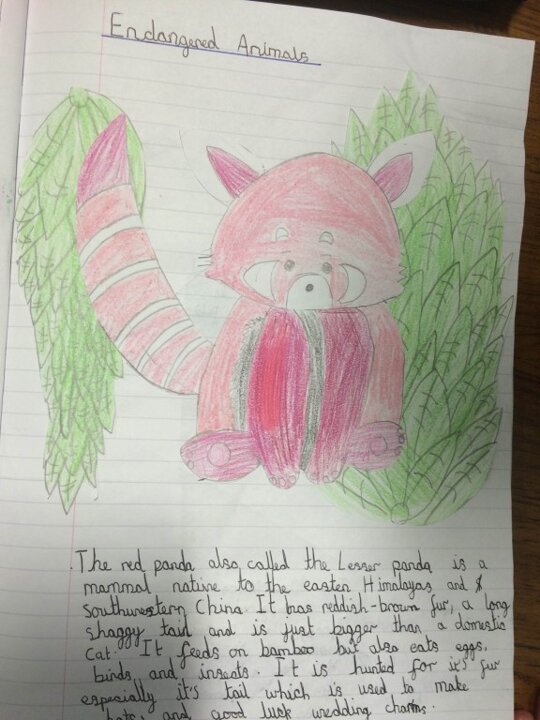 Endangered Animals
The red panda also called the Lesser panda is a
mammal native to the easten Himalayas and
southwestern China. It has reddish-brown fur, a long
shaggy tail and is just bigger than a domestic
cat. It feeds on bamboo but also eats eggs,
birds and insects. It is hunted for it's fur
especially it's tail which is used to make
hats and good luck wedding charms.